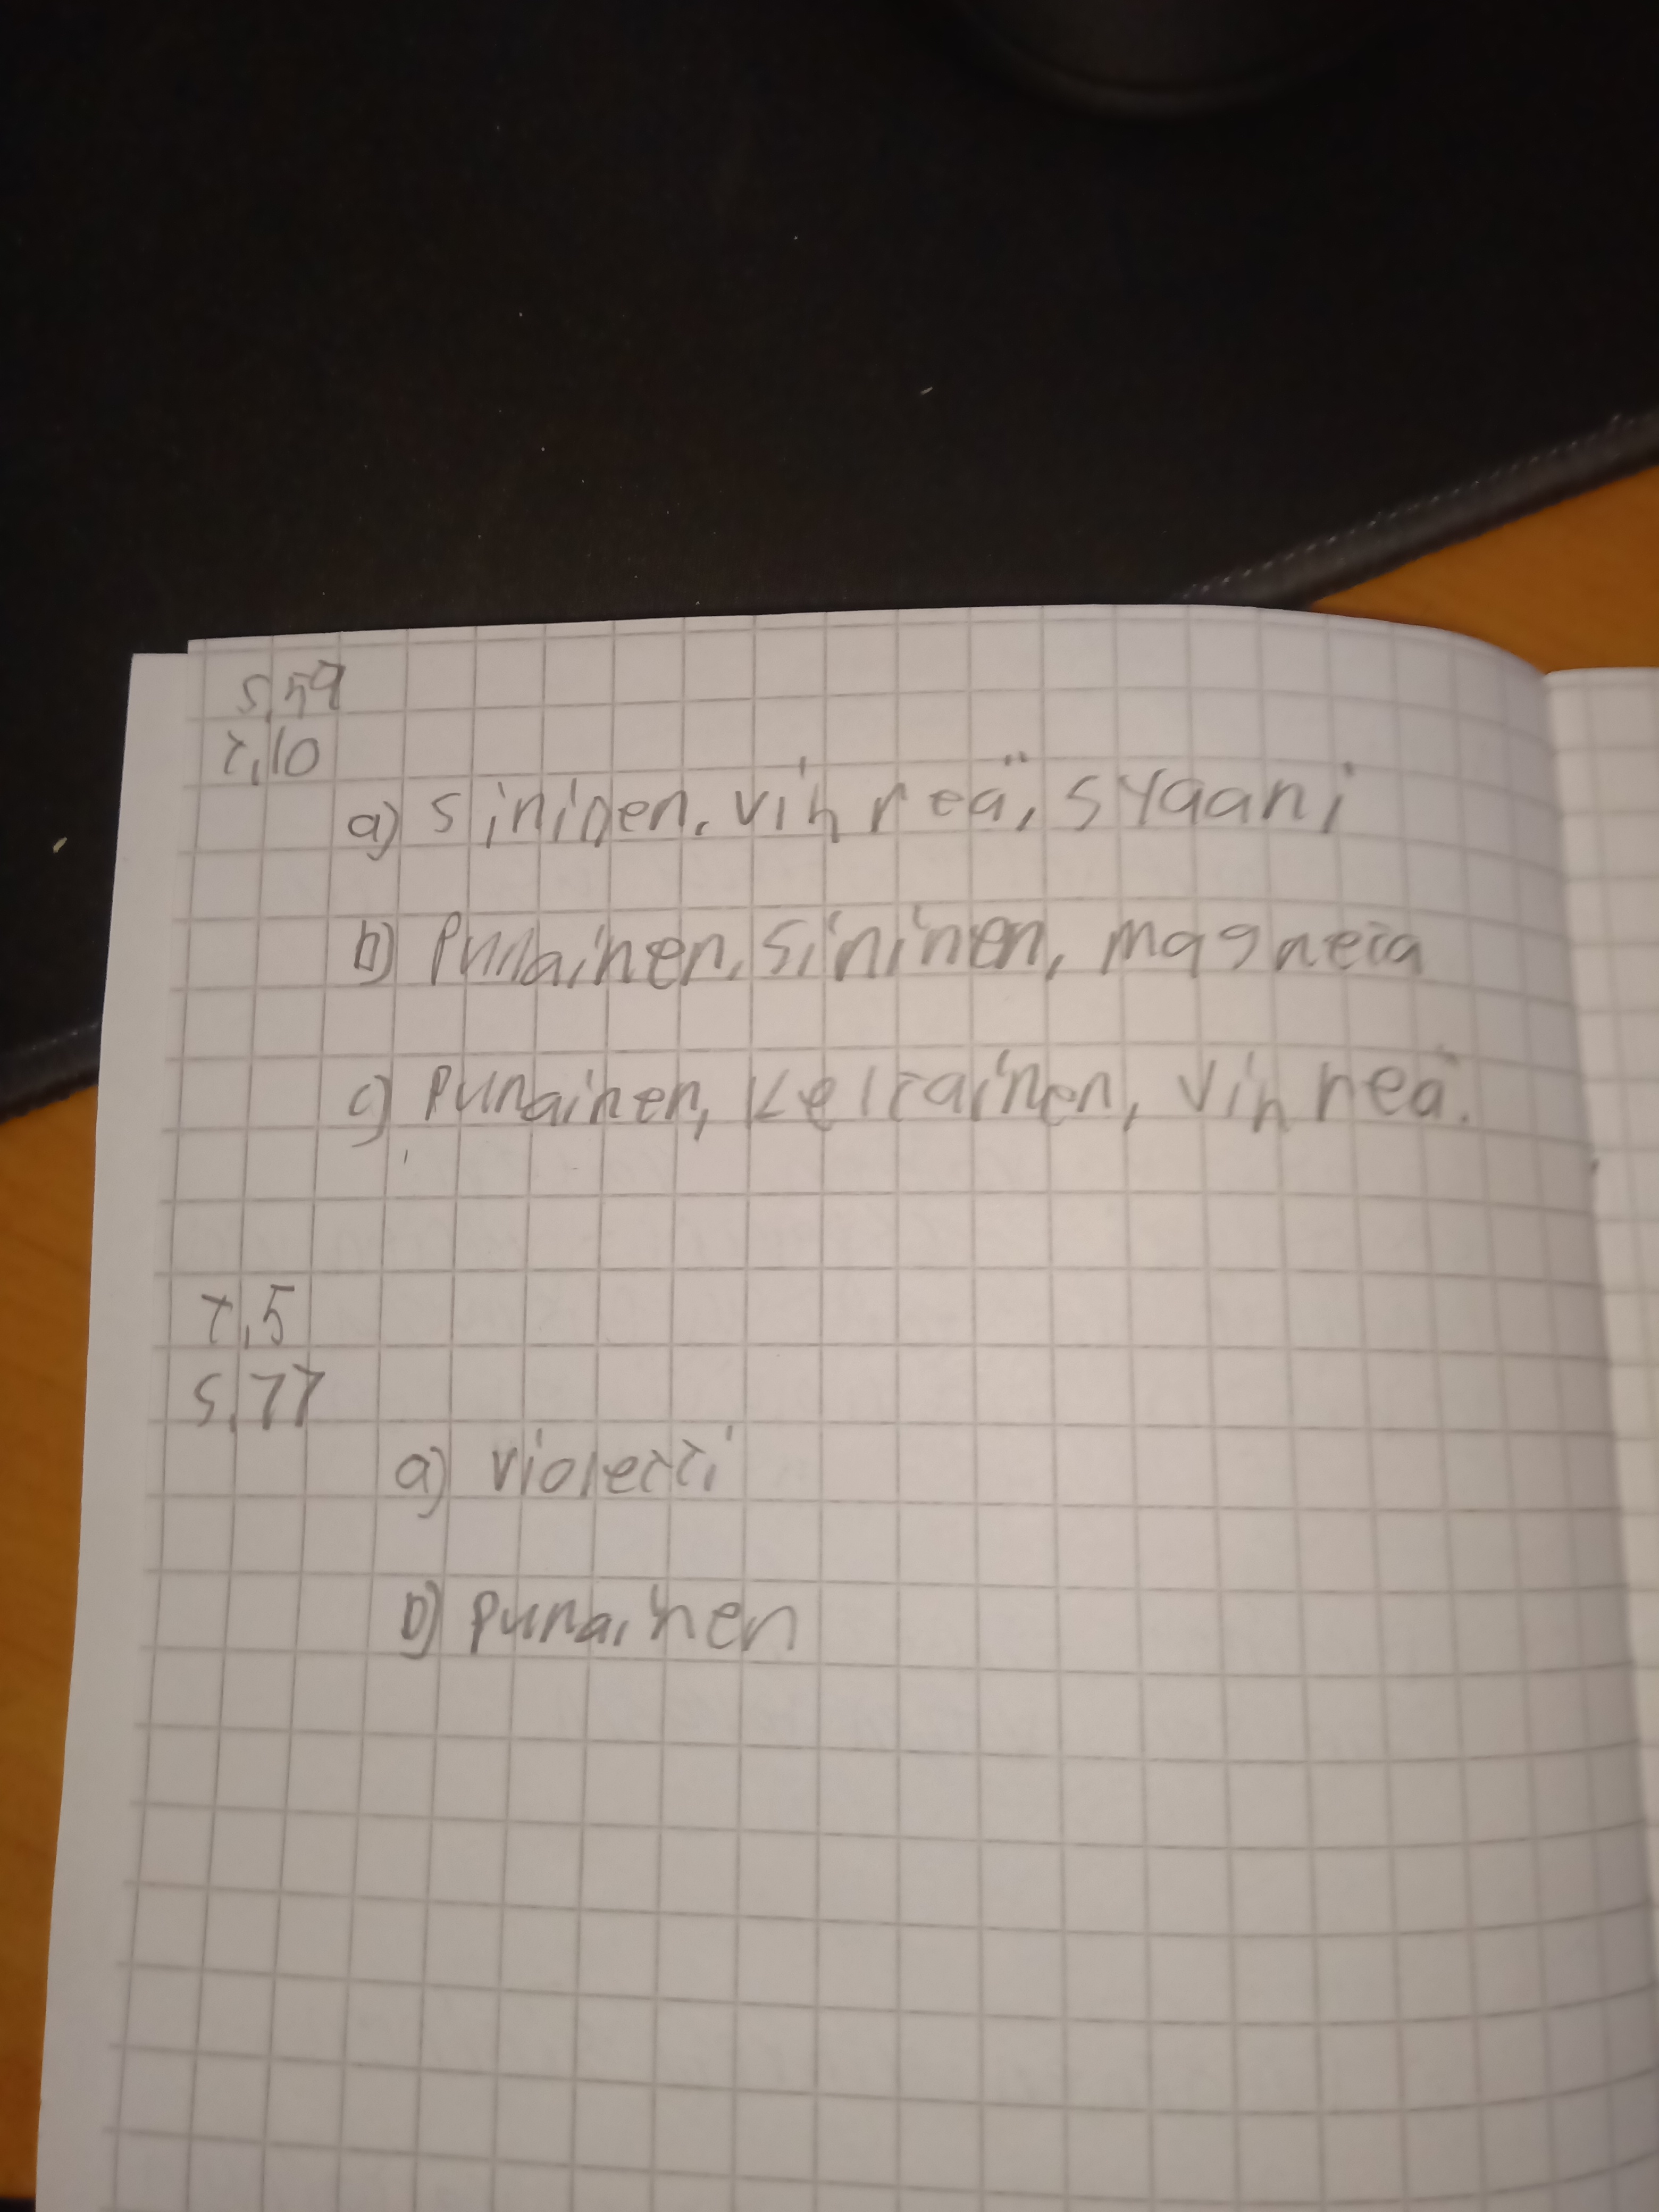 s.59
t.10
a) sininen, vihreä, syaani
b) Punainen, sininen, magneta
c) punainen, keltainen, vihreä.
t.5
s.77
a) violetti
b) punainen